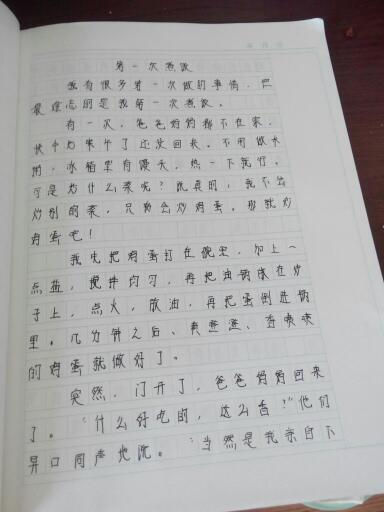 第一次煮饭
我有很多第一次做的事情,但
最难忘的是我第一次煮饭。
有一次,爸爸妈妈都不在家,
快中午了还没回来。不用做米
饭,冰箱里有馒头,热一下就行。
可是炒什么菜呢?说真的,我不会
炒别的菜,只会炒鸡蛋。那就炒
鸡蛋吧!
我先把鸡蛋打在碗里,加上一
点盐,搅拌均匀,再把油锅放在炉
子上,点火,放油,再把蛋倒进锅
里。几分钟之后、黄澄澄、香喷喷
的鸡蛋就做好了。
突然,门开了,爸爸妈妈回来
了。“什么好吃的,这么香?”他们
异口同声地说。“当然是我亲自下